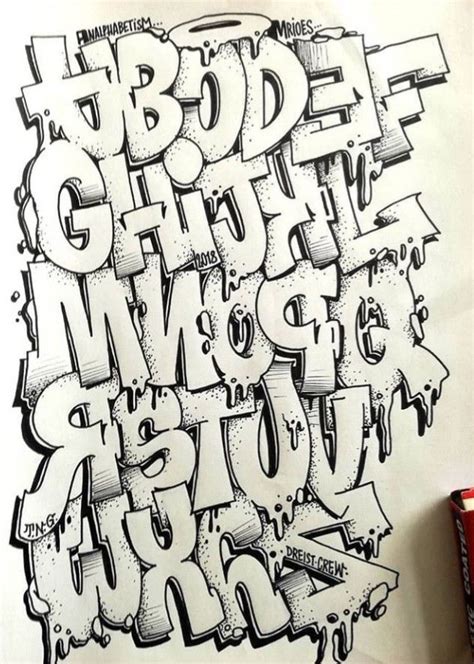 ANALPHABETISM... MRIOES...
ABCDEF
GHIJKL
2018
MNOPQ
RSTUV
T.N.G.
WXYZ
DREIST.CREW
COATED